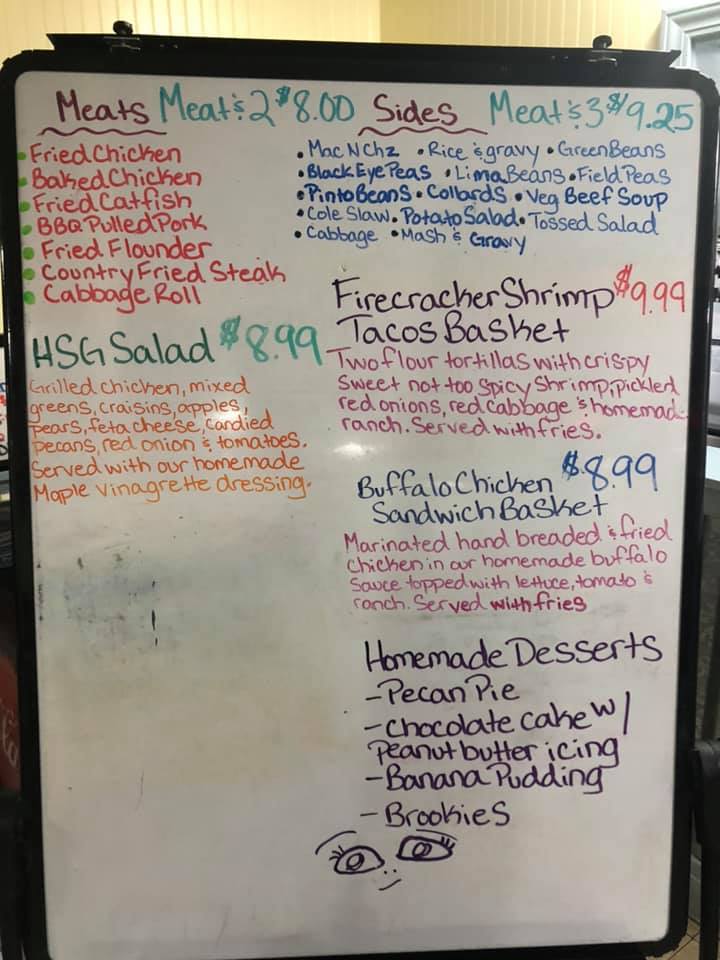 Meats Meat & 2 $8.00 Sides Meat & 3 $9.25
• Fried Chicken
• Baked Chicken
• Fried Catfish
• BBQ Pulled Pork
• Fried Flounder
• Country Fried Steak
• Cabbage Roll
• Mac N Chz • Rice & gravy • Green Beans
• Black Eye Peas • Lima Beans • Field Peas
• Pinto Beans • Collards • Veg Beef Soup
• Cole Slaw • Potato Salad • Tossed Salad
• Cabbage • Mash & Gravy
HSG Salad $8.99
Grilled chicken, mixed
greens, craisins, apples,
pears, feta cheese, candied
pecans, red onion & tomatoes.
Served with our homemade
Maple vinagrette dressing.
Firecracker Shrimp $9.99
Tacos Basket
Two flour tortillas with crispy
sweet not too spicy shrimp, pickled
red onions, red cabbage & homemad
ranch. Served with fries.
Buffalo Chicken $8.99
Sandwich Basket
Marinated hand breaded & fried
chicken in our homemade buffalo
sauce topped with lettuce, tomato &
ranch. Served with fries
Homemade Desserts
- Pecan Pie
- Chocolate cake w/
Peanut butter icing
- Banana Pudding
- Brookies